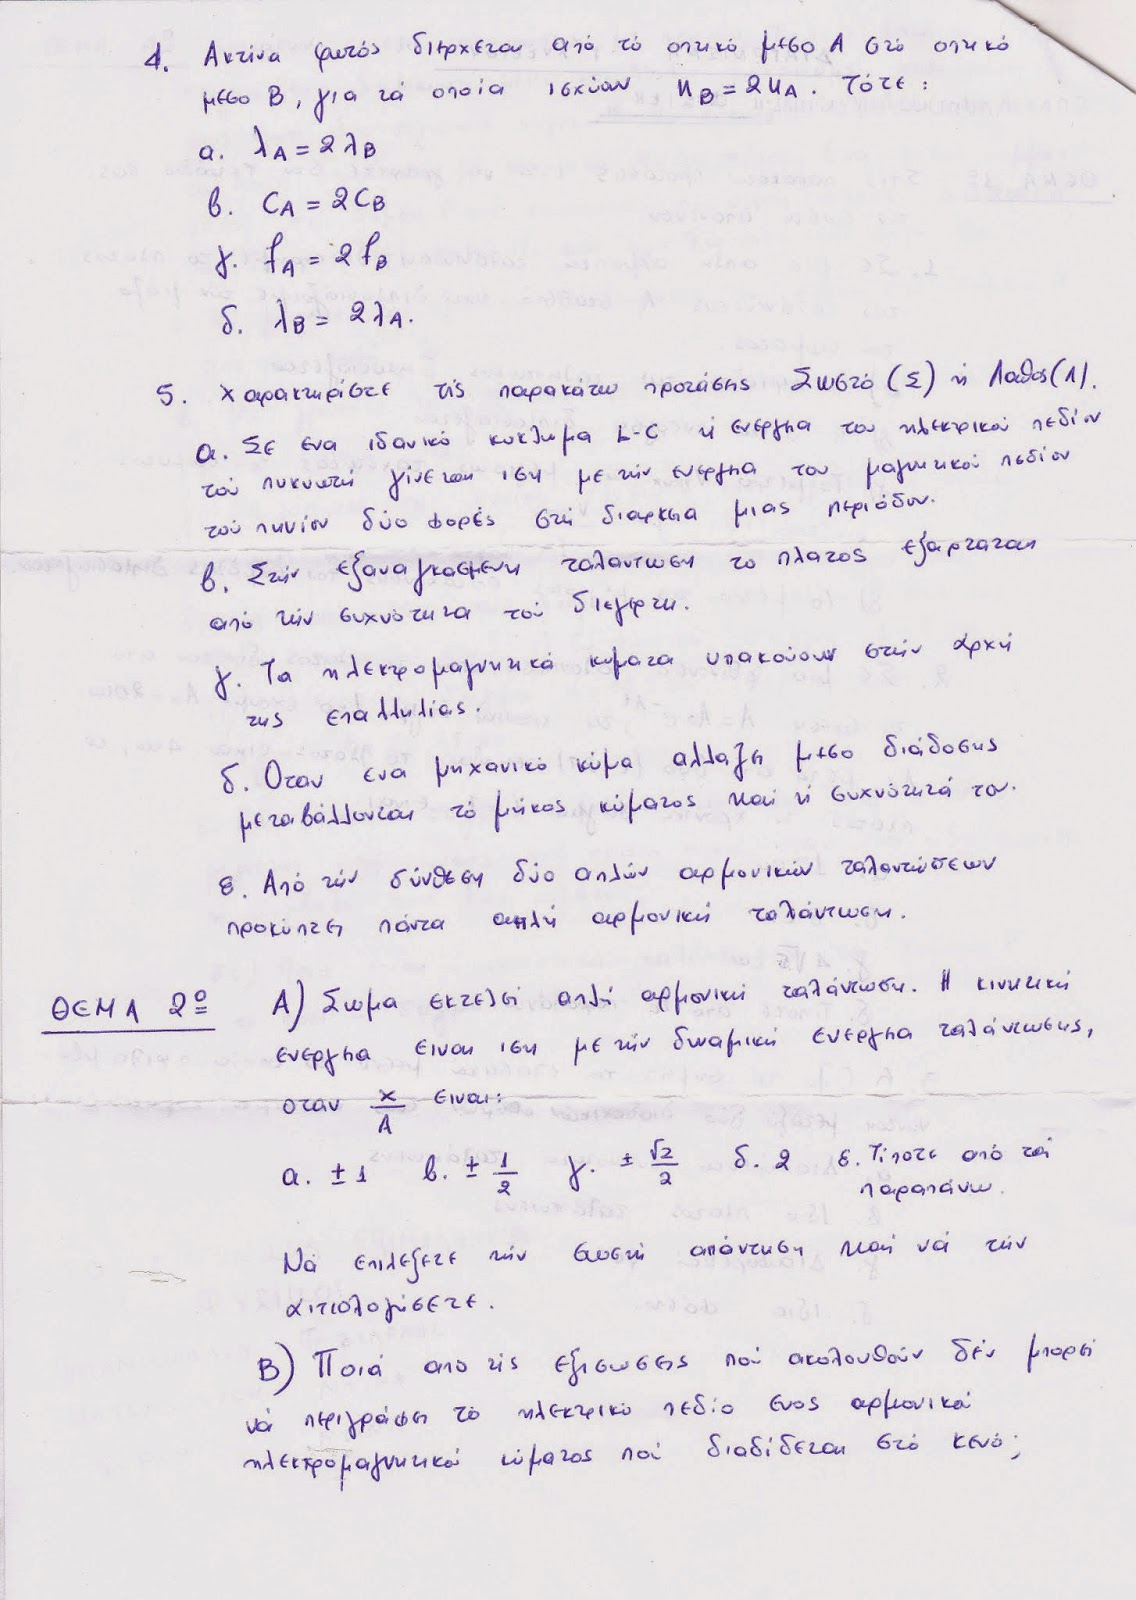 4. Ακτίνα φωτός διερχεται από τό οπτικό μεσο Α στό οπτικό
μεσο Β, για τά οποία ισχύουν nB = 2nA. Τότε:
α. λA = 2λB
β. CA = 2CB
γ. fA = 2fB
δ. λB = 2λA.
5. Χαρακτηρίστε τίς παρακάτω προτάσης Σωστό (Σ) ή Λαθος (Λ).
α. Σε ενα ιδανικό κύκλωμα L-C ή ενέργηα του ηλεκτρικού πεδίου
τού πυκνωτή γίνεται ιση με τήν ενεργηα του μαγνητικού πεδίου
τού πηνίου δύο φορές στή διαρκεια μιας περιόδου.
β. Στήν εξαναγκασμενη ταλαντωση το πλατος εξαρταται
από τήν συχνότητα τού διεγερτη.
γ. Τα ηλεκτρομαγνητικά κυματα υπακούουν στήν αρχή
της επαλληλίας.
δ. Οταν ενα μηχανικό κύμα αλλαζη μεσο διάδοσης
μεταβάλλονται τό μήκος κύματος καί ή συχνότητά του.
ε. Από τήν σύνθεση δύο απλών αρμονικών ταλαντώσεων
προκύπτει πάντα απλή αρμονική ταλάντωση.
ΘΕΜΑ 2º Α) Σωμα εκτελεί απλή αρμονική ταλάντωση. Η κινητική
ενεργηα ειναι ιση με τήν δυναμική ενεργηα ταλάντωσης,
οταν x/A ειναι:
α. ±1 β. ± 1/2 γ. ± √2/2 δ. 2 ε. Τίποτε από τά
παραπάνω.
Νά επιλεξετε τήν σωστή απάντηση καί νά τήν
αιτιολογήσετε.
Β) Ποιά απο τίς εξισωσης πού ακολουθούν δέν μπορεί
νά περιγράφει τό ηλεκτρικό πεδίο ενος αρμονικά
ηλεκτρομαγνητικού κύματος πού διαδίδεται στό κενό;